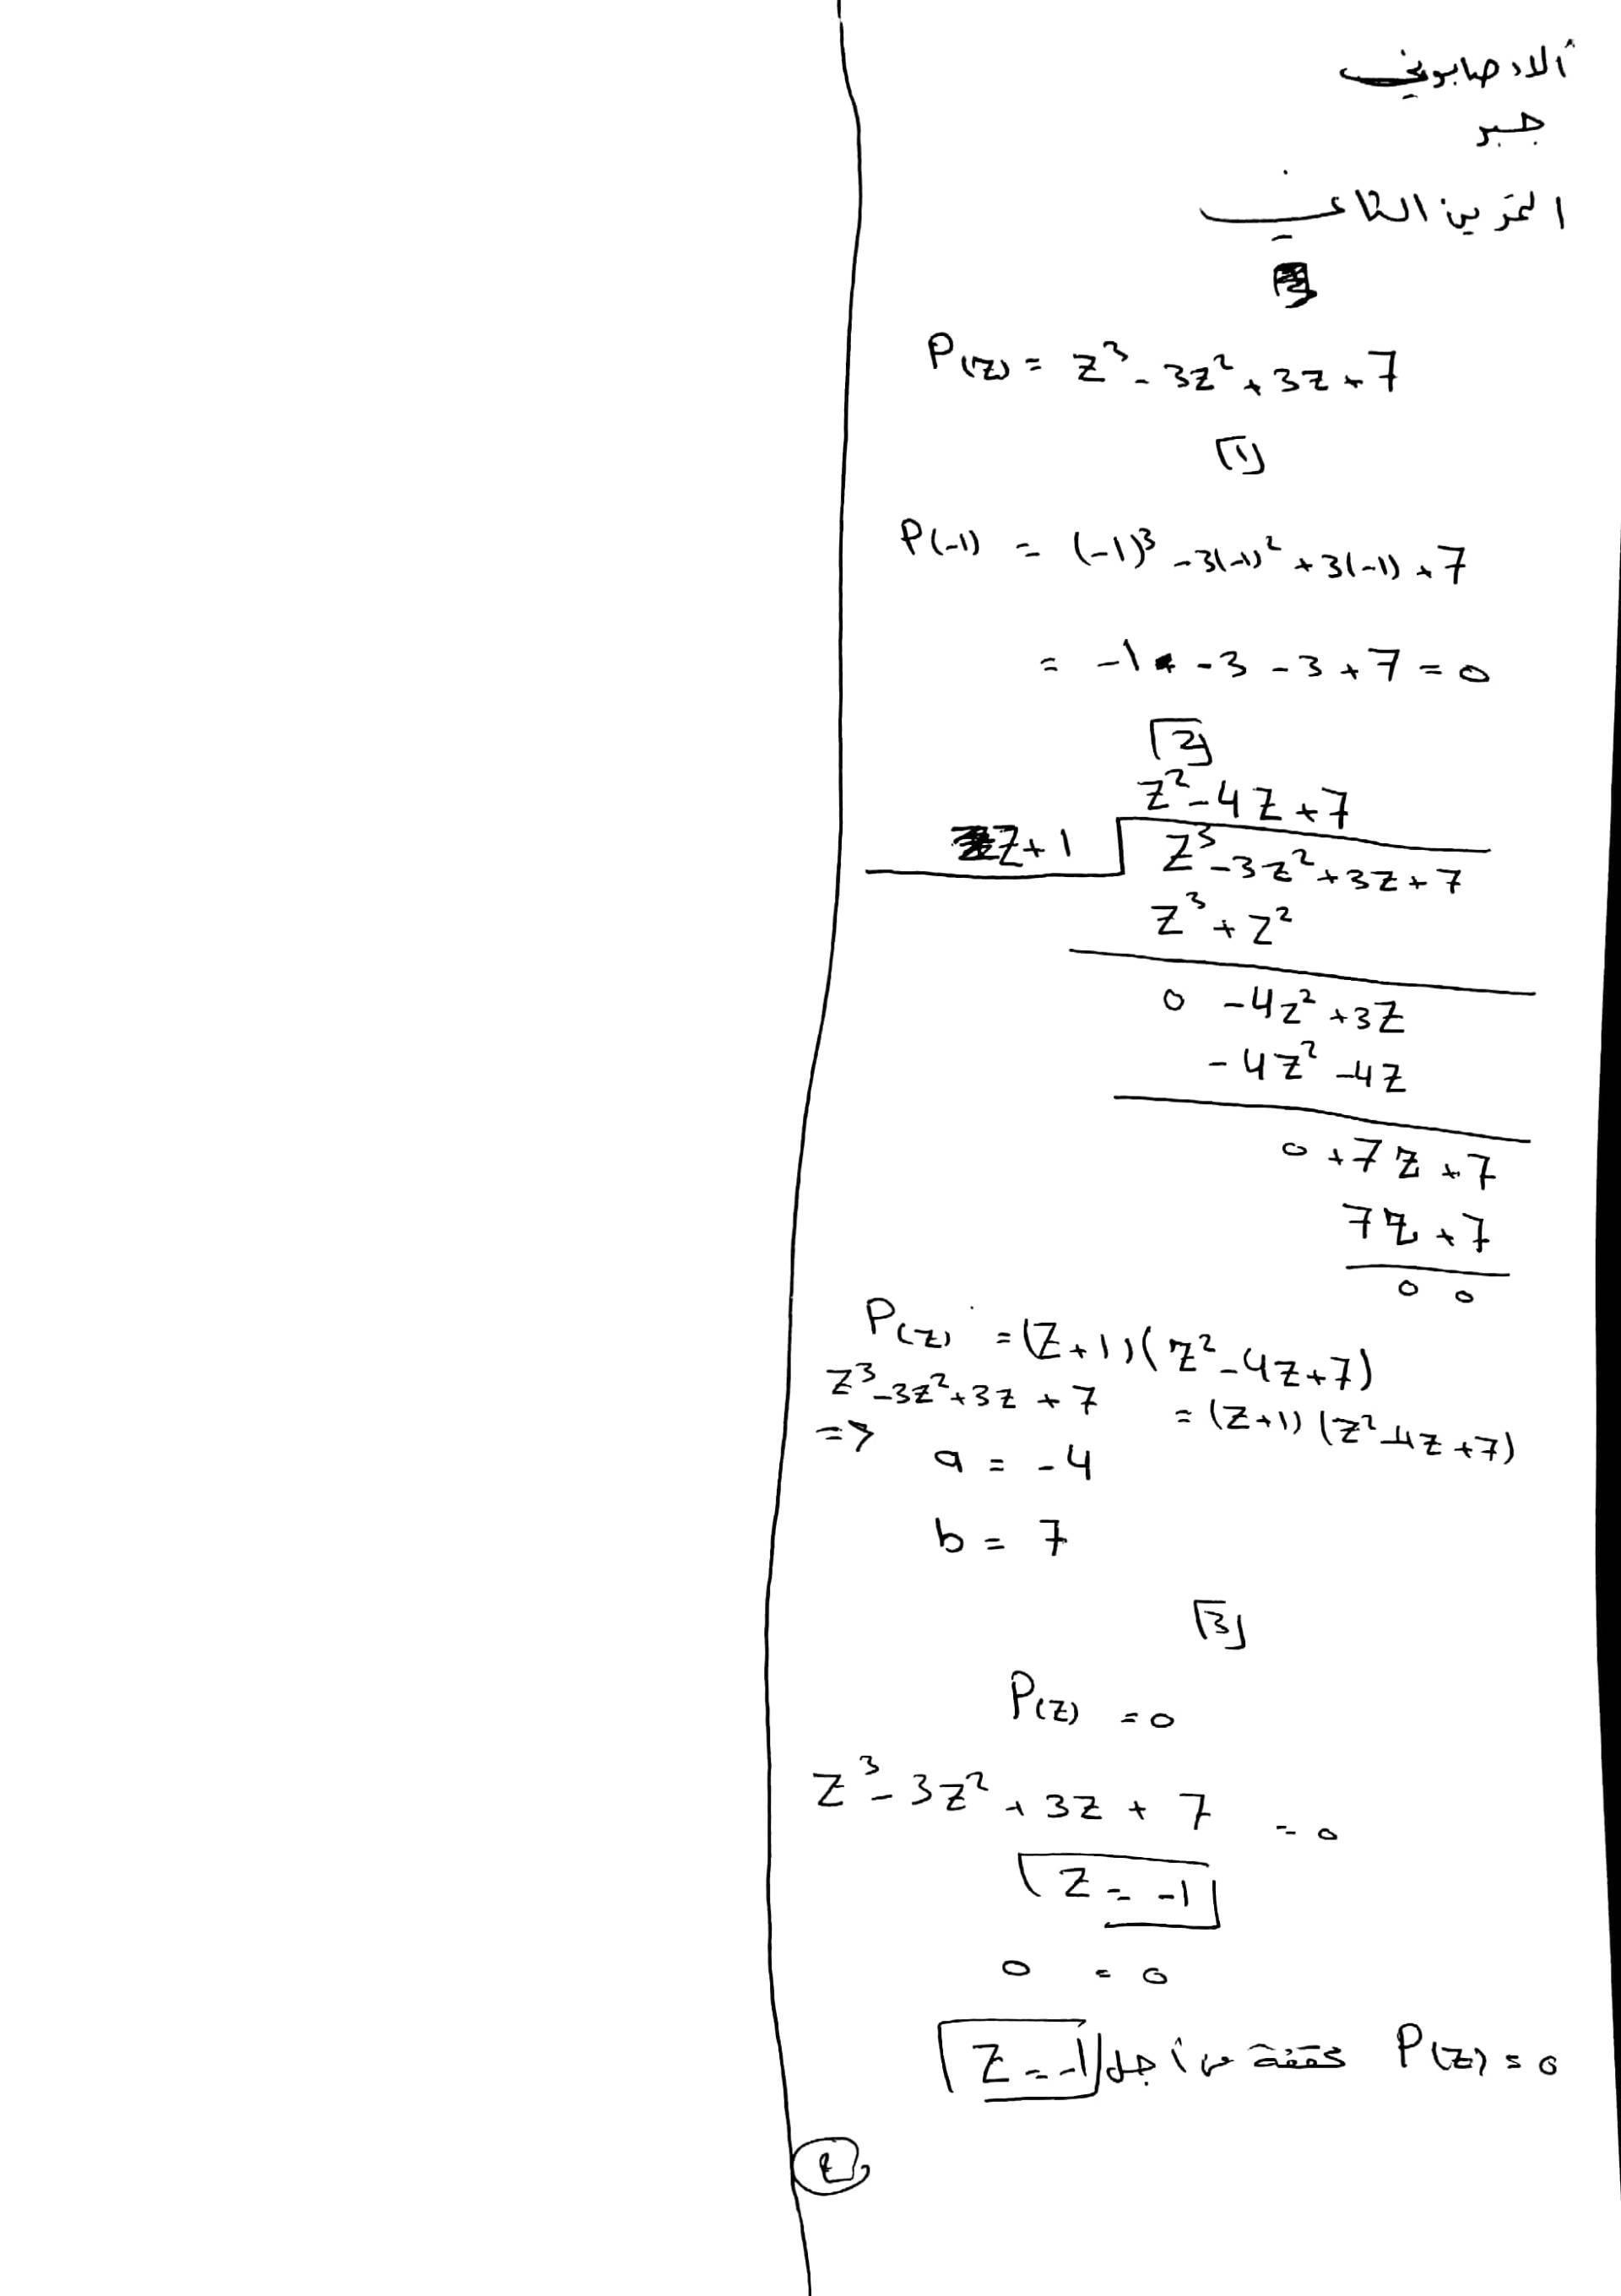 ألاء صابوني
جبر
التمرين الثاني
P(z) = z³ - 3z² + 3z + 7
[1]
P(-1) = (-1)³ - 3(-1)² + 3(-1) + 7
= -1 - 3 - 3 + 7 = 0
[2]
z² - 4z + 7
z + 1 z³ - 3z² + 3z + 7
z³ + z²
0 - 4z² + 3z
- 4z² - 4z
0 + 7z + 7
7z + 7
0 0
P(z) = (z + 1)(z² - 4z + 7)
z³ - 3z² + 3z + 7 = (z + 1)(z² - 4z + 7)
=> a = -4
b = 7
[3]
P(z) = 0
z³ - 3z² + 3z + 7 = 0
z = -1
0 = 0
P(z) = 0 محققة من أجل z = -1